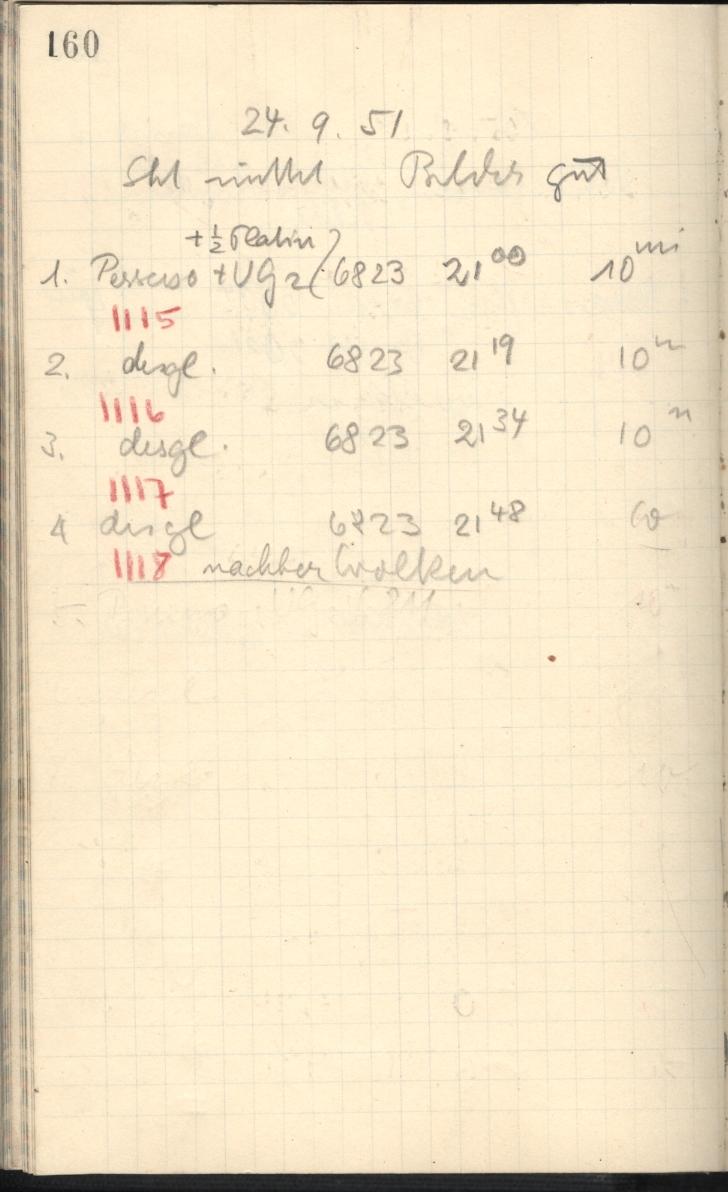 160
24. 9. 51
Sht mittel Bilder gut
+ ½ Platin
1. Perseso + UG2 ( 6823 21⁰⁰ 10ᵐⁱ
1115
2. desgl. 6823 21¹⁹ 10ᵐ
1116
3. desgl. 6823 21³⁴ 10ⁿ
1117
4 desgl 6823 21⁴⁸
1118 nachher Wolken